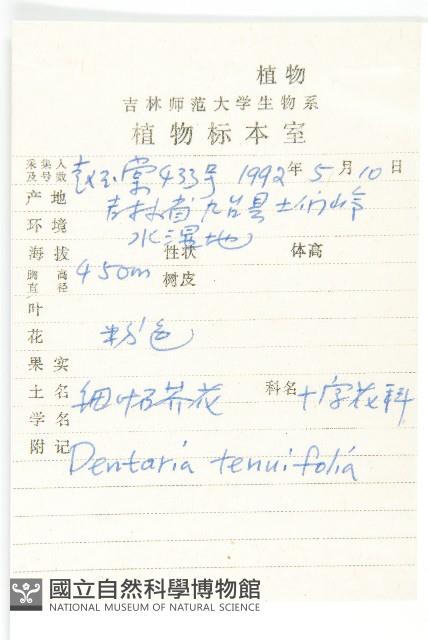 植物
吉林师范大学生物系
植物标本室
采集人及号数 赵玉棠 433号 1992年5月10日
产地 吉林省九台县土们岭
环境 水湿地
海拔 450m 性状 体高
胸高直径 树皮
叶
花 粉色
果实
土名 细叶石芥花 科名 十字花科
学名 Dentaria tenuifolia
附记
國立自然科學博物館
NATIONAL MUSEUM OF NATURAL SCIENCE